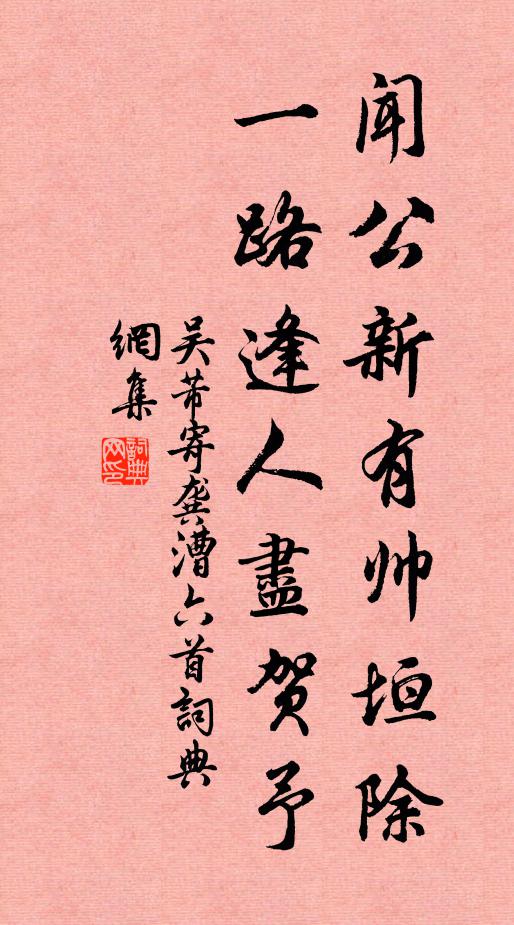 闻公新有帅垣除
一路逢人盡贺予
吴芾寄龚漕六首詞典
網集
詞典
网印